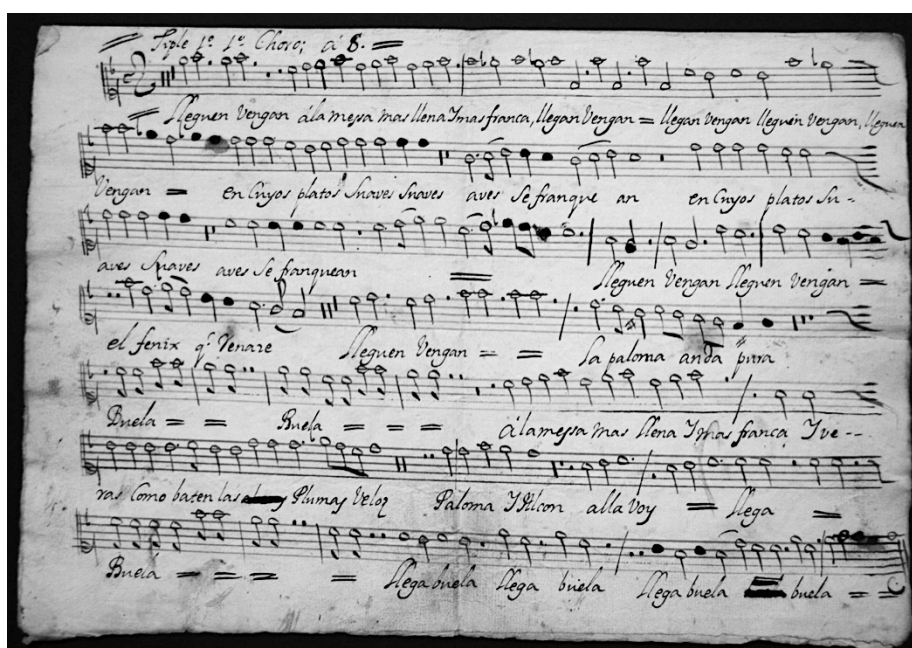 Tiple 1º 1º Choro; á 8. =
Lleguen Vengan á la messa mas llena Y mas franca, llegan Vengan = llegan Vengan lleguen Vengan, lleguen
Vengan = en Cuyos platos Suaves Suaves aves Se franque an en Cuyos platos Su-
aves Suaves aves Se franquean = Lleguen Vengan lleguen Vengan =
el fenix qe. Lleguen Vengan = = La paloma anda pura
Buela = = Buela = = = á la messa mas llena Y mas franca Y ve--
ras Como baten las Plumas Veloz Paloma Y Alcon alla Voy = llega =
Buela = = = = llega buela llega buela llega buela buela = =